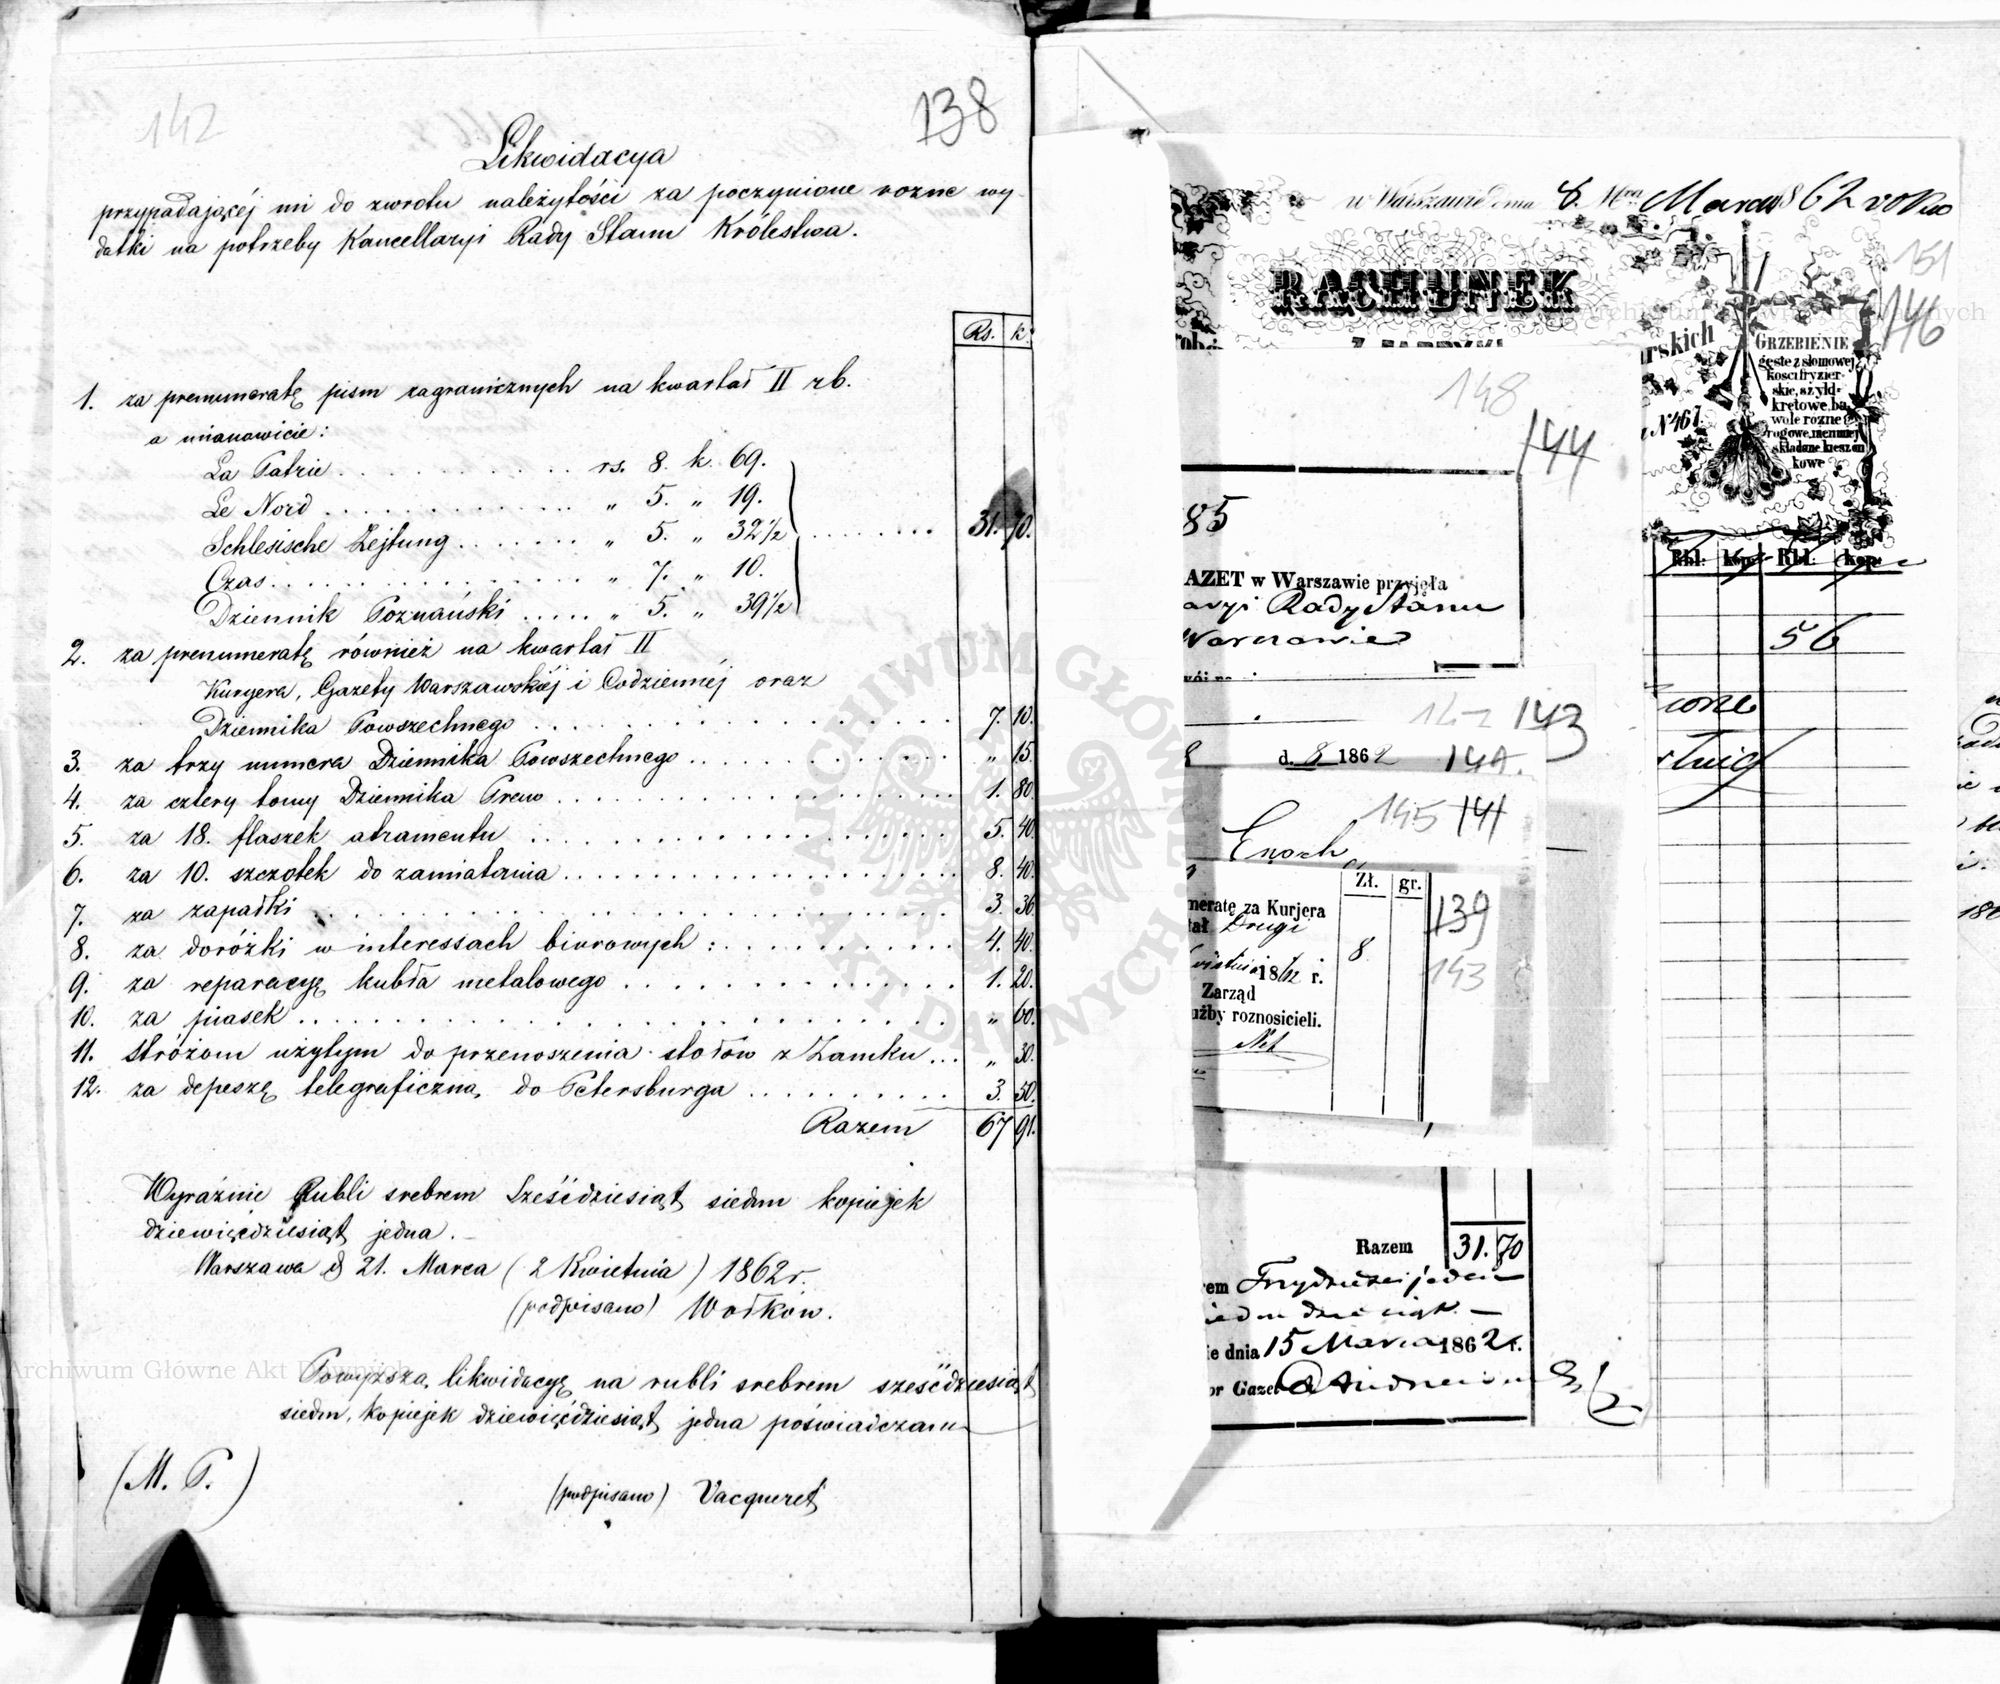 142
138
Likwidacya
przypadającéj mi do zwrotu należytości za poczynione rozne wy-
datki na potrzeby Kancellaryi Rady Stanu Królestwa.
Rs. k.
1. za prenumeratę pism zagranicznych na kwartał II rb.
a mianowicie:
La Patrie . . . rs. 8. k. 69.
Le Nord . . . „ 5. „ 19.
Schlesische Zejtung . . . „ 5. „ 32½
Czas . . . „ 7. „ 10.
Dziennik Poznański . . . „ 5. „ 39½
31. 70.
2. za prenumeratę również na kwartał II
Kuryera, Gazety Warszawskiéj i Codziennéj oraz
Dziennika Powszechnego . . . 7. 10.
3. za trzy numera Dziennika Powszechnego . . . „ 15.
4. za cztery tomy Dziennika Praw . . . 1. 80.
5. za 18. flaszek atramentu . . . 5. 40.
6. za 10. szczotek do zamiatania . . . 8. 40.
7. za zapałki . . . 3. 36.
8. za doróżki w interessach biurowych : . . . 4. 40.
9. za reparacyę kubła metalowego . . . 1. 20.
10. za piasek . . . „ 60.
11. stróżom użytym do przenoszenia stołów z Zamku . . . „ 30.
12. za depeszę telegraficzną do Petersburga . . . 3. 50.
Razem 67 91.
Wyraźnie Rubli srebrem sześćdziesiąt siedm kopiejek
dziewięćdziesiąt jedna.
Warszawa d 21. Marca (2 Kwietnia) 1862 r.
(podpisano) Wołkow.
Powyższą likwidacyę na rubli srebrem sześćdziesiąt
siedm, kopiejek dziewięćdziesiąt jedna poświadczam
(M. P.)
(podpisano) Vacqueret
w Warszawie dnia 8. Marca 1862 roku
151
146
RACHUNEK
Z FABRYKI
rskich
N 467.
GRZEBIENIE
gęste z słomowej
kosci fryzier-
skie, szyld-
kretowe, ba
wole rozne
rogowe, niemniej
składane kieszon
kowe
Rbl: kop: Rbl: kop:
56
148
144
85
AZET w Warszawie przyjęła
aryi Rady Stanu
Warszawie
143
d. 8 1862
140.
145 141
Enoch
Zł. gr.
meratę za Kurjera
tał Drugi
8.
wietnia 1862 r.
Zarząd
użby roznosicieli.
139
143
Razem 31. 70
em Trzydzieści jeden
iedmdziesiąt. —
ie dnia 15 Marca 1862 r.
or Gazet
Archiwum Główne Akt Dawnych
Archiwum Główne Akt Dawnych
ARCHIWUM GŁÓWNE AKT DAWNYCH